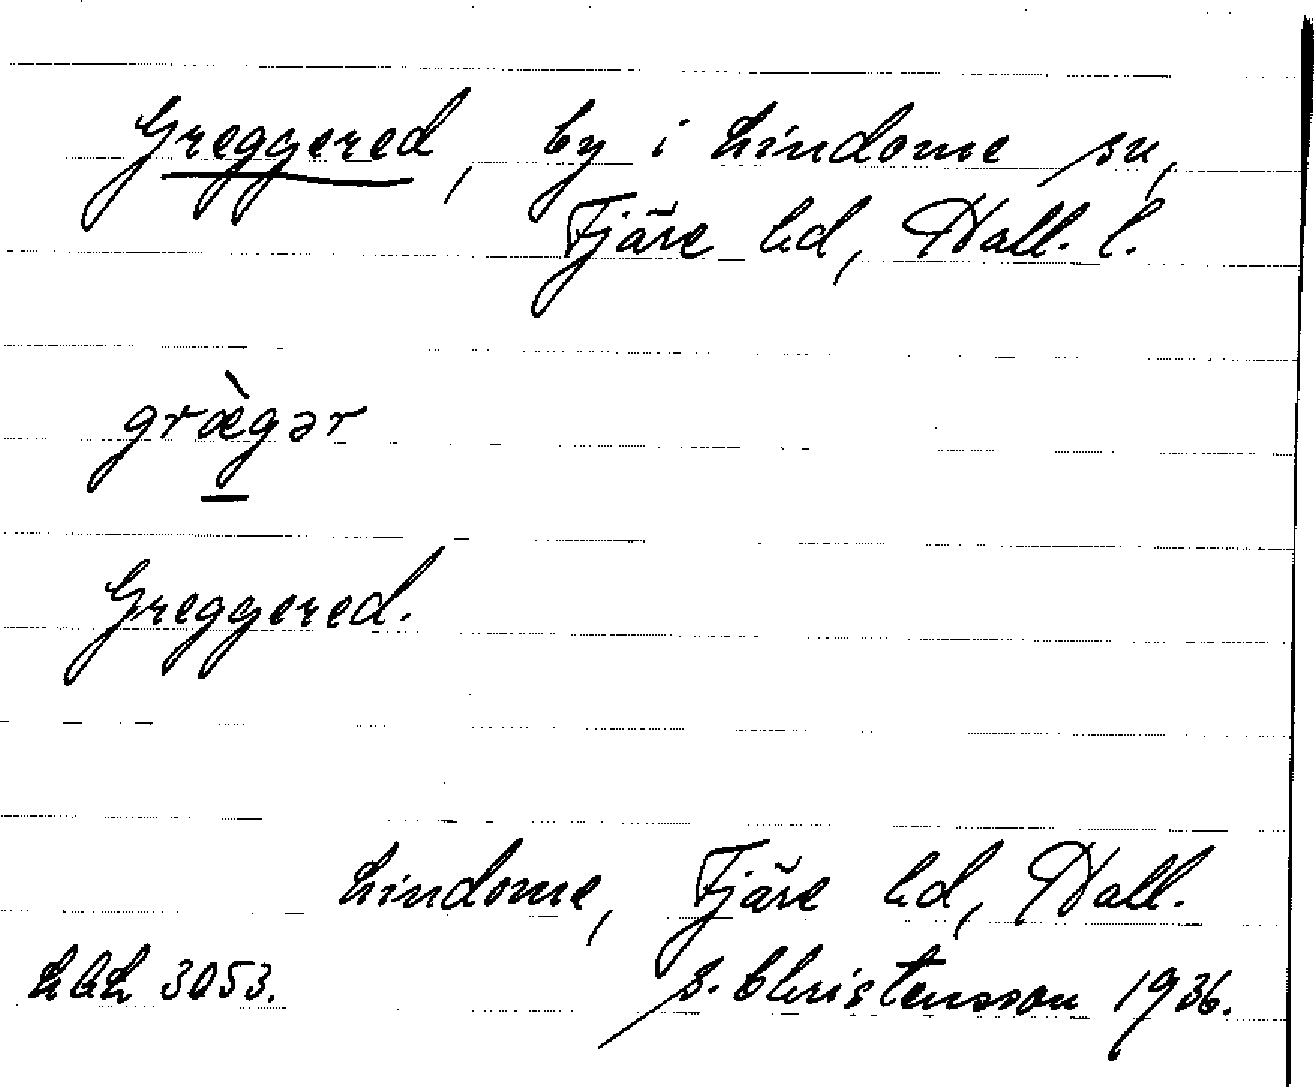 Greggered, by i Lindome sn,
Fjäre hd, Hall. l.
græ̀gər
Greggered.
Lindome, Fjäre hd, Hall.
LAL 3053. S. Christensson 1936.